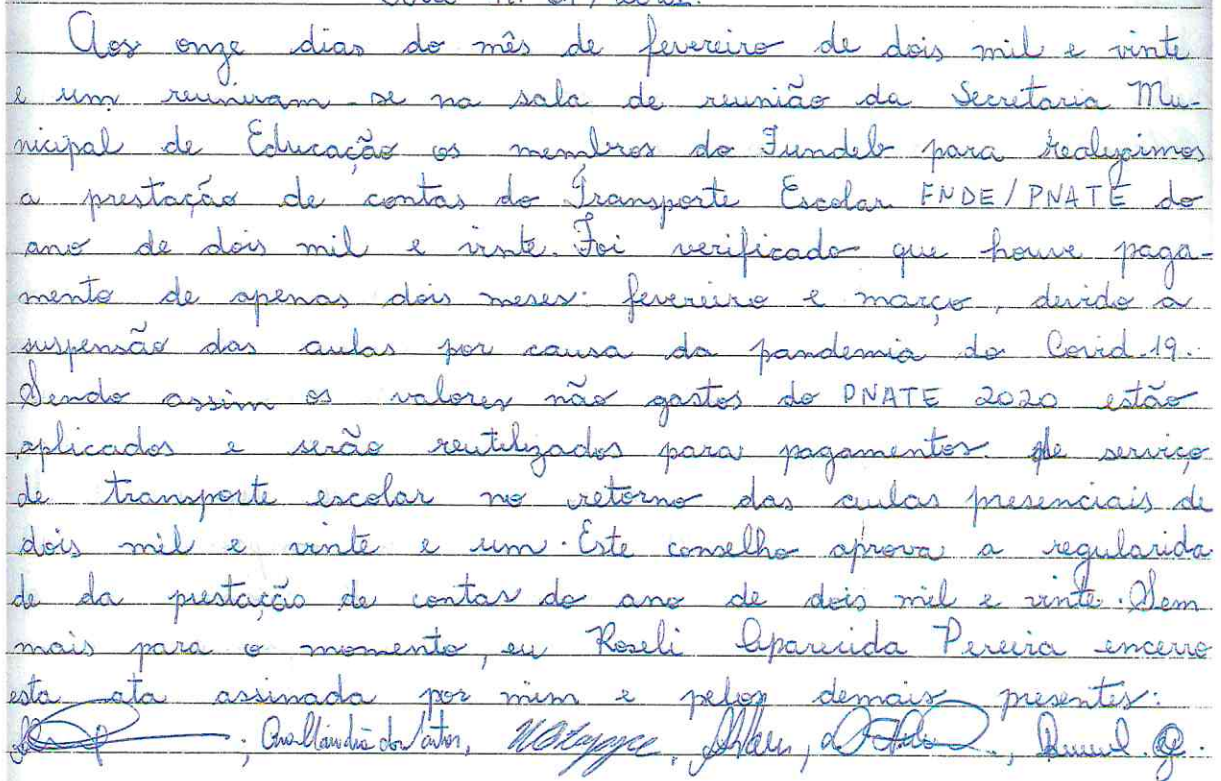 Aos onze dias do mês de fevereiro de dois mil e vinte
e um reuniram-se na sala de reunião da Secretaria Mu-
nicipal de Educação os membros do Fundeb para realizarmos
a prestação de contas do Transporte Escolar FNDE/PNATE do
ano de dois mil e vinte. Foi verificado que houve paga-
mento de apenas dois meses: fevereiro e março, devido a
suspensão das aulas por causa da pandemia do Covid-19.
Sendo assim os valores não gastos do PNATE 2020 estão
aplicados e serão reutilizados para pagamentos de serviço
de transporte escolar no retorno das aulas presenciais de
dois mil e vinte e um. Este conselho aprova a regularida
de da prestação de contas do ano de dois mil e vinte. Sem
mais para o momento, eu Roseli Aparecida Pereira encerro
esta ata assinada por mim e pelos demais presentes: